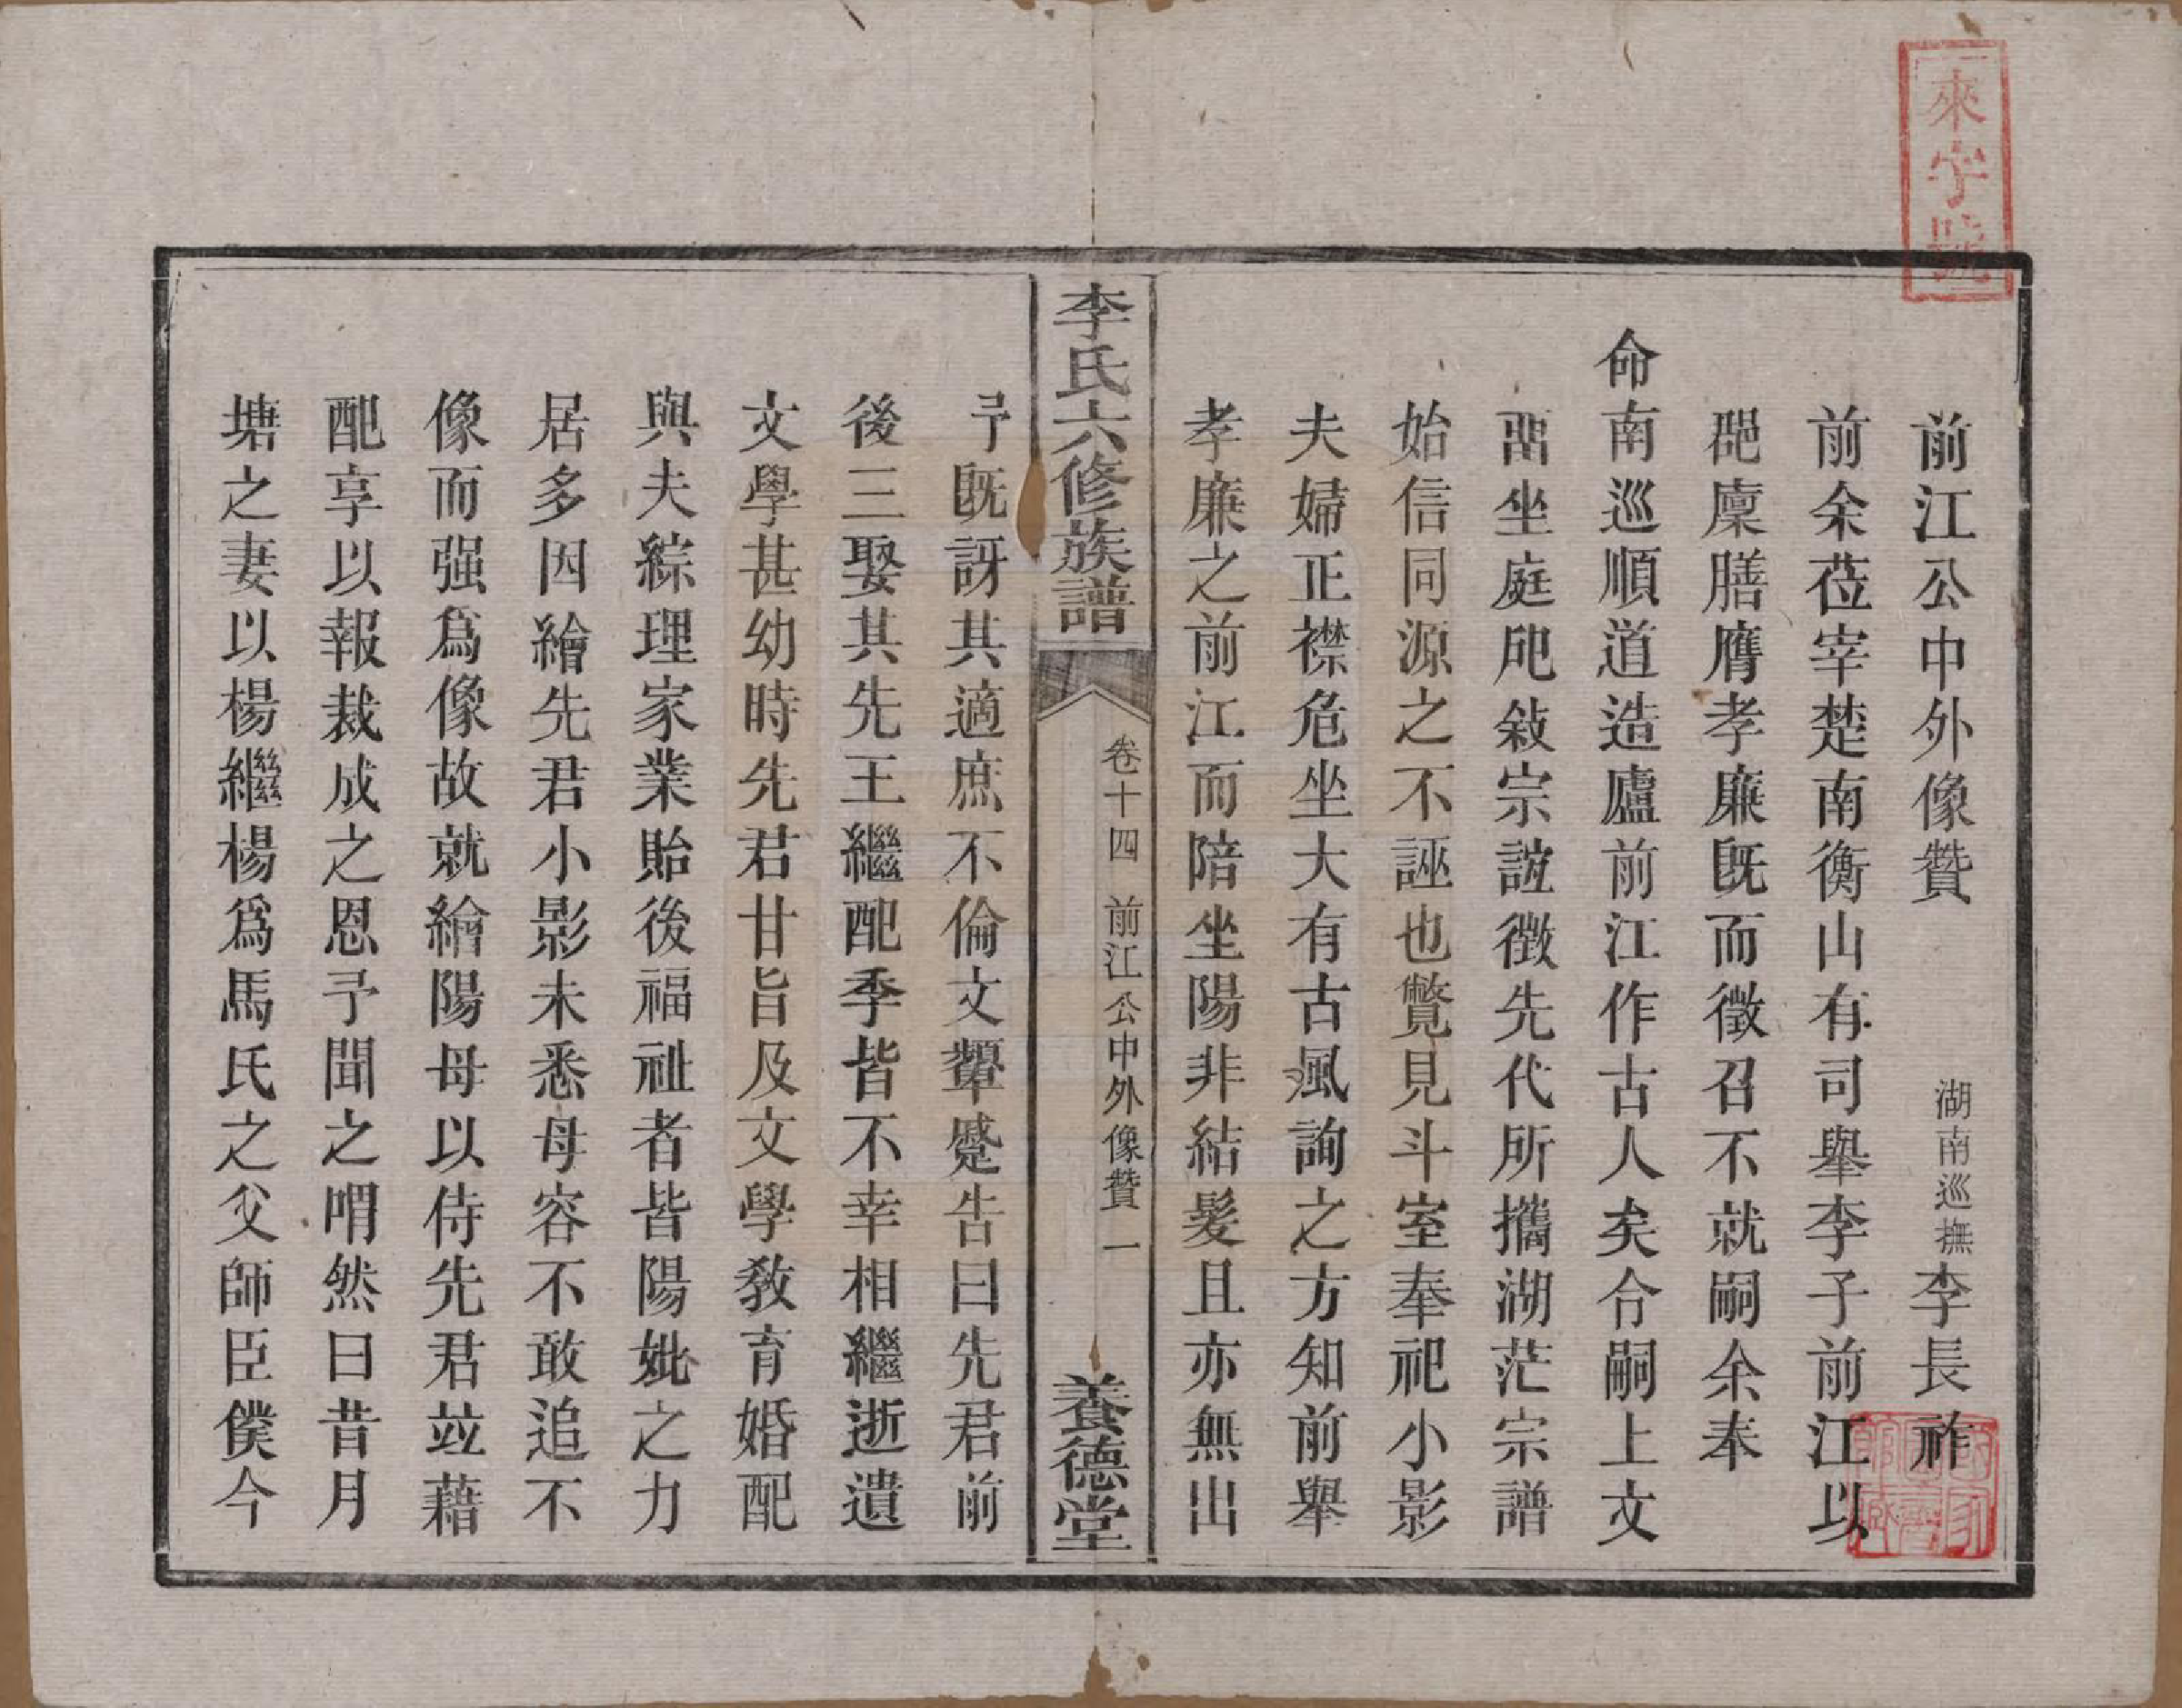 來字號
前江公中外像贊 湖南巡撫李長祚
前余莅宰楚南衡山有司舉李子前江以
邑廩膳膺孝廉旣而徵召不就嗣余奉
命南巡順道造廬前江作古人矣令嗣上文
畱坐庭阤敍宗誼徵先代所攜湖茫宗譜
始信同源之不誣也覽見斗室奉祀小影
夫婦正襟危坐大有古風詢之方知前舉
孝廉之前江而陪坐陽非結髮且亦無出
李氏六修族譜 卷十四 前江公中外像贊 一 養德堂
予旣訝其適庶不倫文顰蹙告曰先君前
後三娶其先王繼配季皆不幸相繼逝遺
文學甚幼時先君甘旨及文學敎育婚配
與夫綜理家業貽後福祉者皆陽妣之力
居多因繪先君小影未悉母容不敢追不
像而强爲像故就繪陽母以侍先君竝藉
配享以報裁成之恩予聞之喟然曰昔月
塘之妻以楊繼楊爲馬氏之父師臣僕今